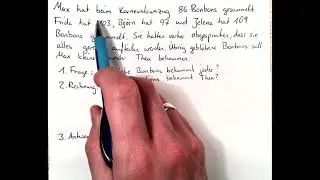 Max hat beim Karnevalsumzug 86 Bonbons gesammelt.
Frida hat 103, Björn hat 97 und Jelena hat 109
Bonbons gesammelt. Sie hatten vorher abgesprochen, dass sie
alles aufteilen werden. Übrig gebliebene Bonbons soll
Max kleiner Theo bekommen.
1. Frage: Bonbons bekommt jeder?
2. Rechnung
3. Antwort